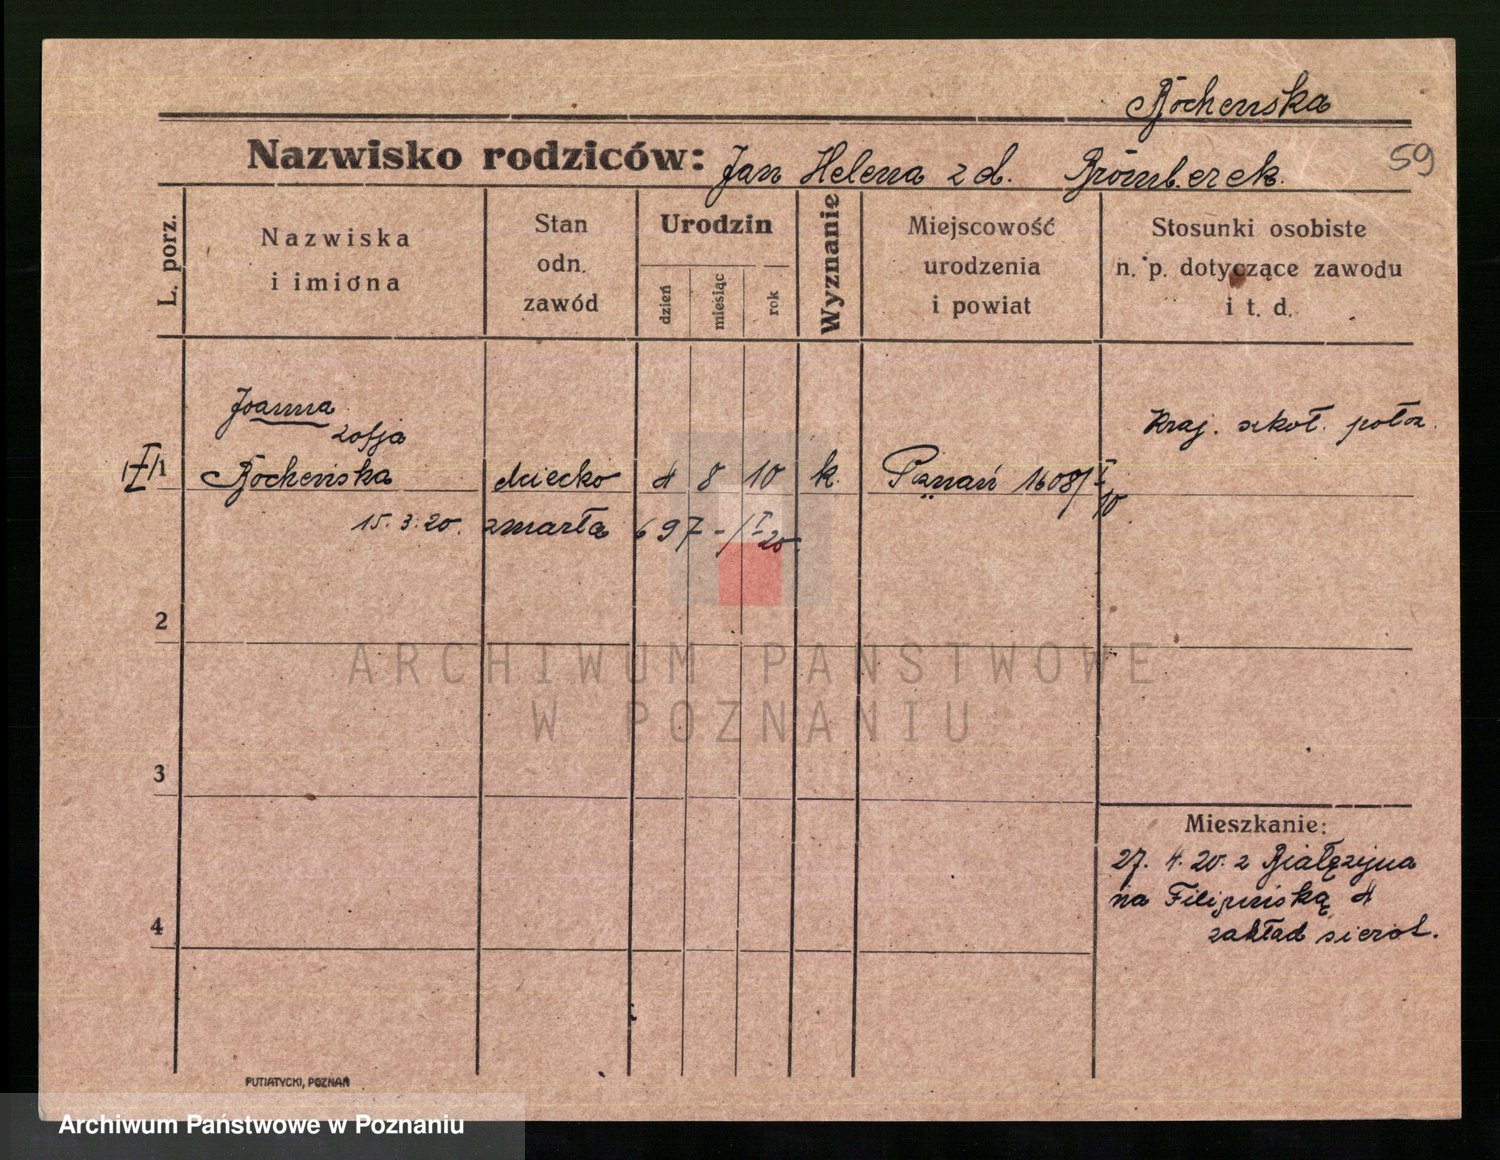 Bochenska
Nazwisko rodziców: Jan Helena z d. Bromberek. 59
L. porz.
Nazwiska
i imiona
Stan
odn.
zawód
Urodzin
dzień
miesiąc
rok
Wyznanie
Miejscowość
urodzenia
i powiat
Stosunki osobiste
n. p. dotyczące zawodu
i t. d.
Joanna
Zofja
Kraj. szkoł. położ.
1 Bochenska dziecko 4 8 10 k. Poznań 1608/I
10
15.3.20. zmarła 697-/I
20
2
3
4
ARCHIWUM PAŃSTWOWE
W POZNANIU
Mieszkanie:
27. 4. 20. z Białężyna
na Filipińską 4
zakład sierot.
PUTIATYCKI, POZNAŃ
Archiwum Państwowe w Poznaniu